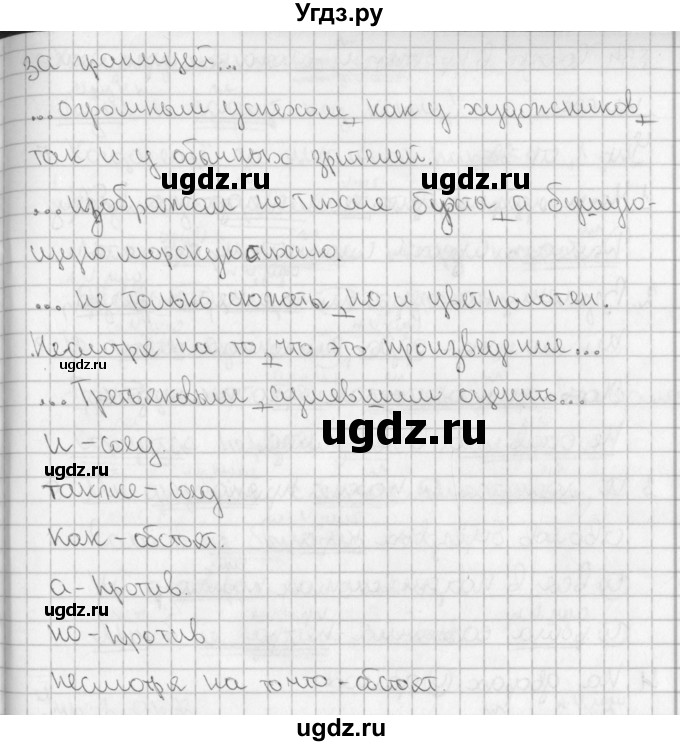 Угдз.ру
за границей...
...огромным успехом, как у художников,
так и у обычных зрителей.
ugdz.ru ugdz.ru
...изображал не тихие бухты, а бушую-
щую морскую стихию.
... не только сюжеты, но и цвет полотен.
Несмотря на то, что это произведение...
ugdz.ru
...Третьяковым, сумевшим оценить...
ugdz.ru
и - соед.
ugdz.ru
также - соед.
как - обстоят.
а - против.
ugdz.ru
но - против
несмотря на то что - обстоят.
ugdz.ru